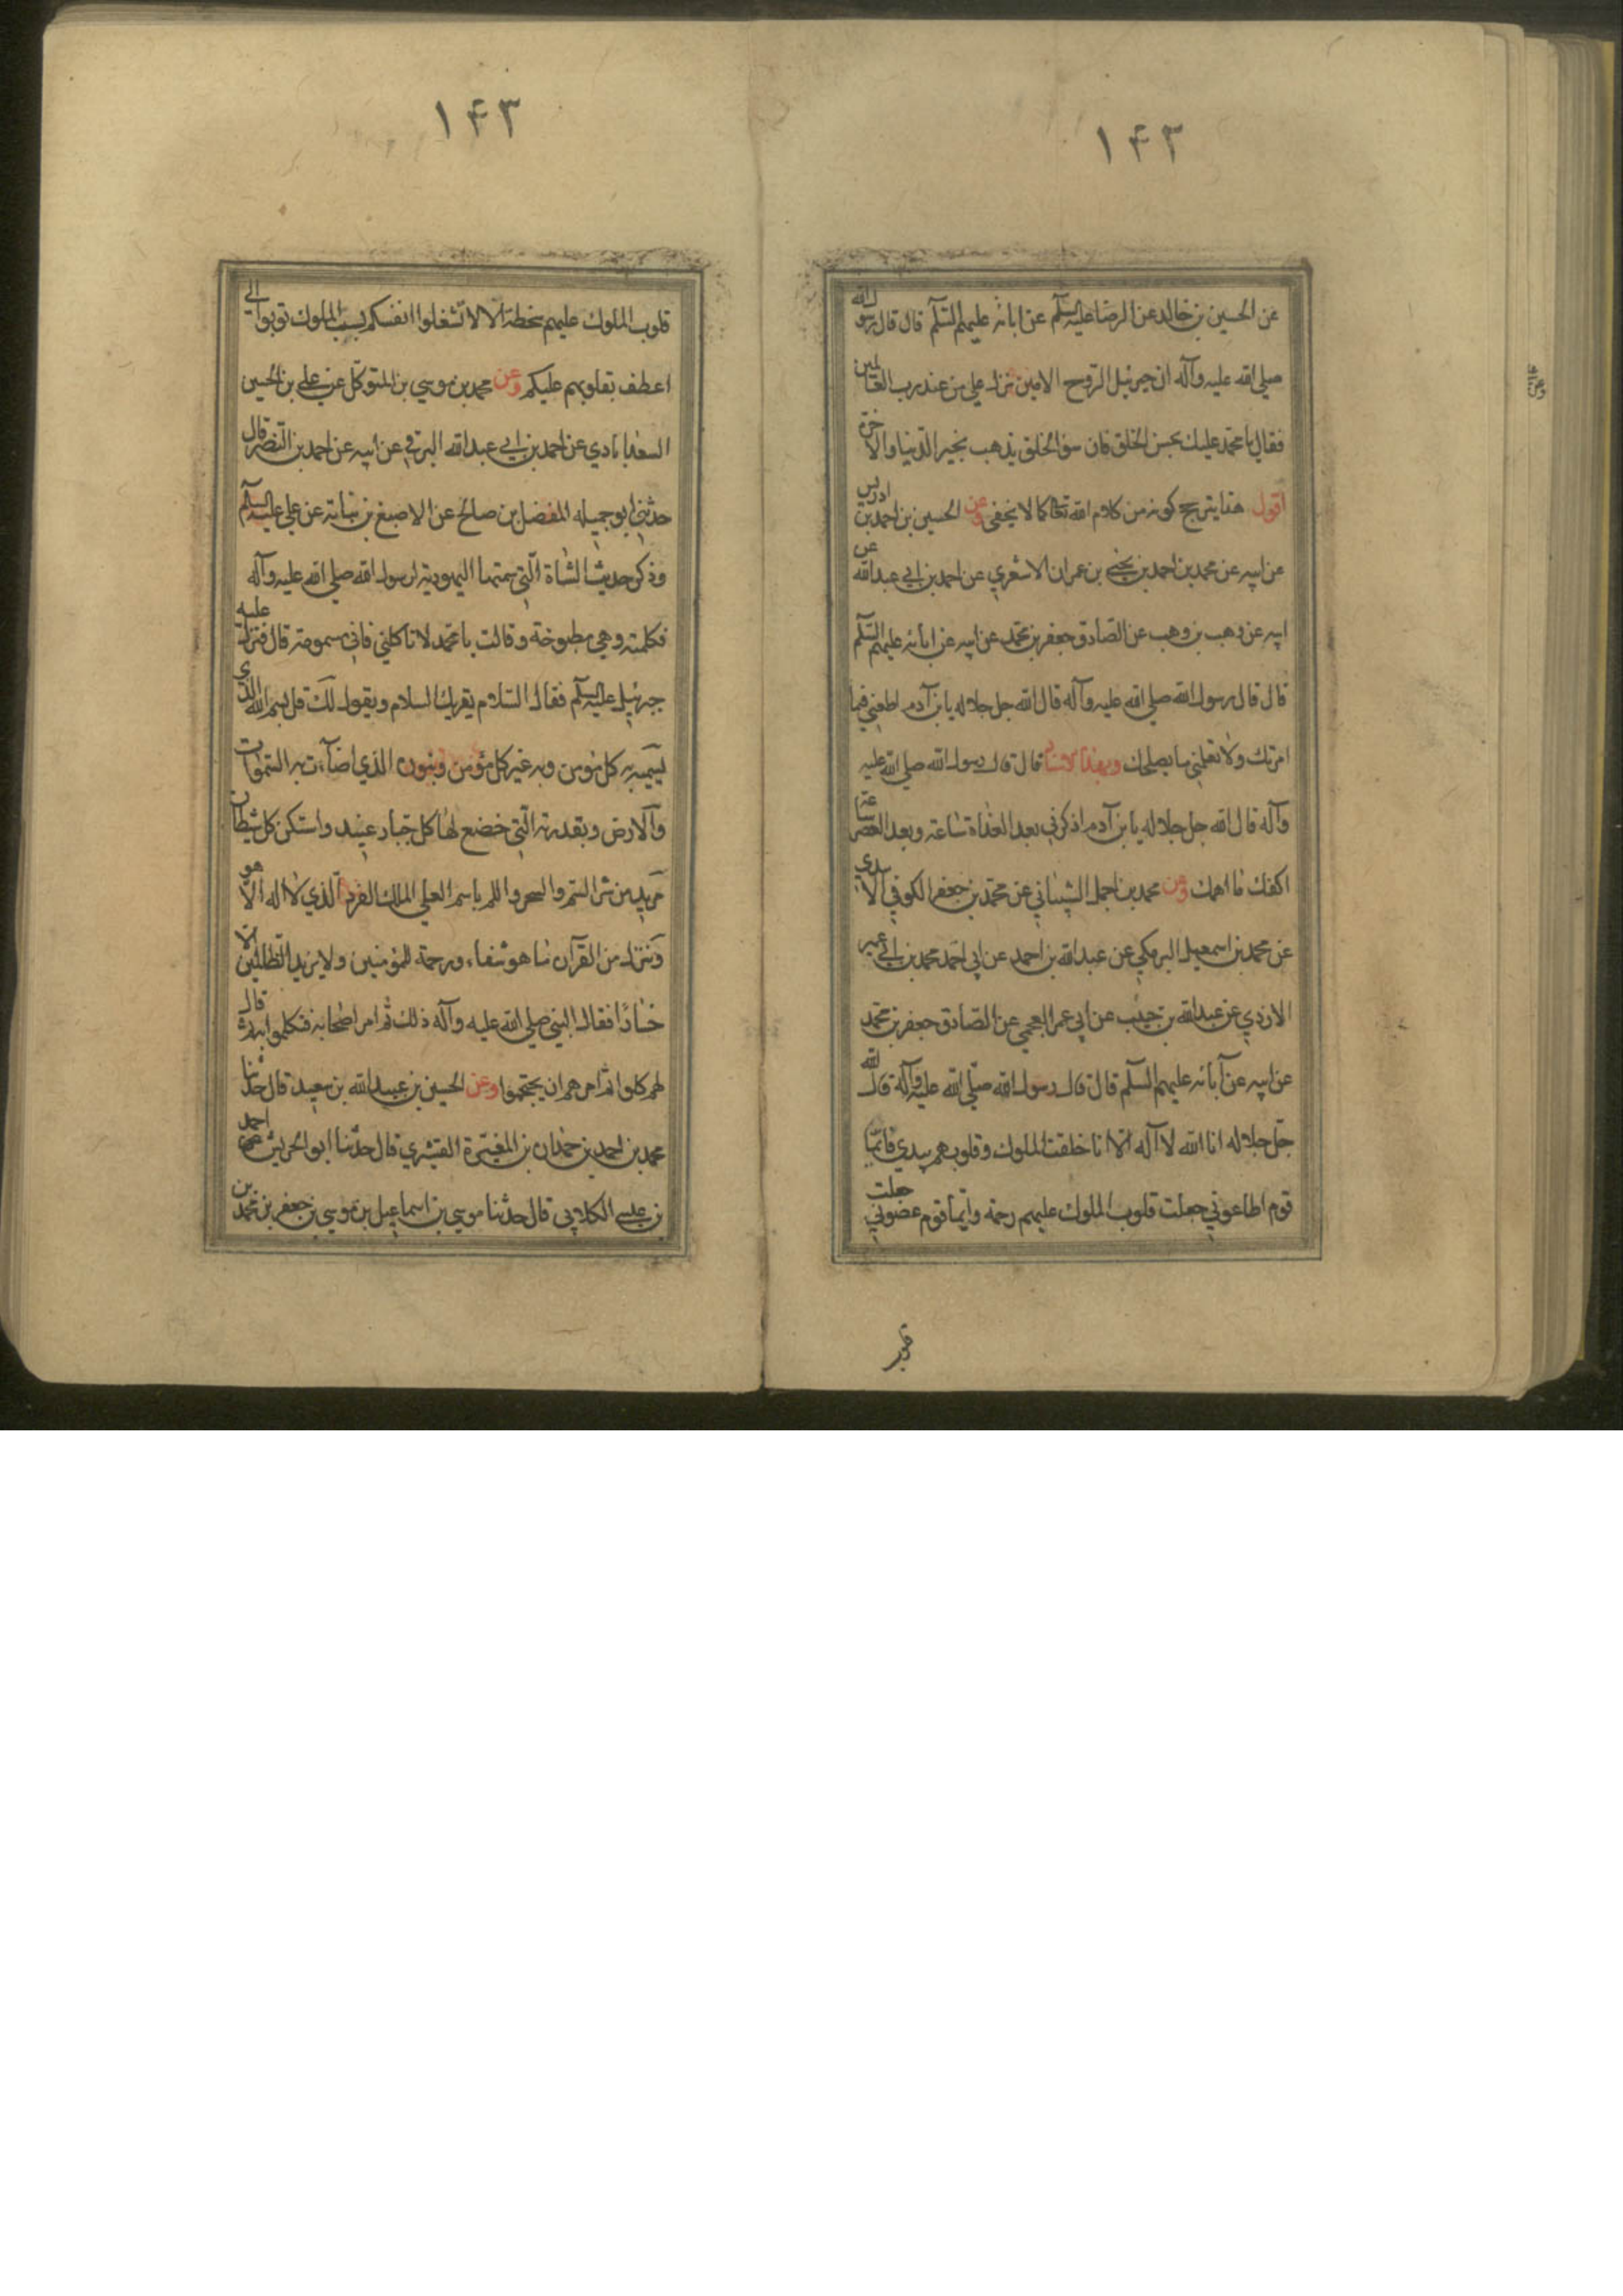 ۱۴۲
عن الحسين بن خالد عن الرضا عليه السلم عن ابائه عليهم السلم قال قال رسول الله
صلي الله عليه وآله ان جبرئيل الروح الامين نزل علي من عند رب العالمين
فقال يا محمد عليك بحسن الخلق فان سوء الخلق يذهب بخير الدنيا والاخرة
اقول هذا يترجح كونه من كلام الله تعا كما لا يخفي وعن الحسين بن احمد بن ادريس
عن ابيه عن محمد بن احمد بن يحيي بن عمران الاشعري عن احمد بن ابي عبد الله عن
ابيه عن وهب بن وهب عن الصادق جعفر بن محمد عن ابيه عن ابائه عليهم السلم
قال قال رسول الله صلي الله عليه وآله قال الله جل جلاله يا بن آدم اطعني فيما
امرتك ولا تعلمني ما يصلحك وبهذا الاسناد قال قال رسول الله صلي الله عليه
وآله قال الله جل جلاله يا بن آدم اذكرني بعد الغداة ساعة وبعد العصر ساعة
اكفك ما اهمك وعن محمد بن احمد الشيباني عن محمد بن جعفر الكوفي الاسدي
عن محمد بن اسمعيل البرمكي عن عبد الله بن احمد عن ابي احمد محمد بن ابي عمير
الازدي عن عبد الله بن جنيب عن ابي عمر العجمي عن الصادق جعفر بن محمد
عن ابيه عن آبائه عليهم السلم قال قال رسول الله صلي الله عليه وآله قال الله
جل جلاله انا الله لا آله الا انا خلقت الملوك وقلوبهم بيدي فايما
قوم اطاعوني جعلت قلوب الملوك عليهم رحمة وايما قوم عصوني جعلت
۱۴۳
قلوب الملوك عليهم سخطة الا لا تشغلوا انفسكم بسب الملوك توبوا الي
اعطف بقلوبهم عليكم وعن محمد بن موسي بن المتوكل عن علي بن الحسين
السعدابادي عن احمد بن ابي عبد الله البرقي عن ابيه عن احمد بن النضر قال
حدثني ابو جميله المفضل بن صالح عن الاصبغ بن نباته عن علي عليه السلم
وذكر حديث الشاة التي سمتها اليهودية لرسول الله صلي الله عليه وآله
فكلمته وهي مطبوخة وقالت يا محمد لا تاكلني فاني مسمومة قال فنزل عليه
جبرئيل عليه السلم فقال السلام يقرئك السلام ويقول لك قل بسم الله الذي
يسميه به كل مؤمن وبه عز كل مؤمن وبنوره الذي اضآءت به السموات
والارض وبقدرته التي خضع لها كل جبار عنيد واستكن كل شيطان
مريد من شر السم والسحر واللم باسم العلي الملك الفرد الذي لا اله الا هو
وننزل من القرآن ما هو شفاء ورحمة للمؤمنين ولا يزيد الظالمين الا
خسارا فقال النبي صلي الله عليه وآله ذلك ثم امر اصحابه فتكلموا به ثم قال
لهم كلوا ثم امرهم ان يحتجموا وعن الحسين بن عبيد الله بن سعيد قال حدثنا
محمد بن احمد بن حمدان بن المغيرة القشيري قال حدثنا ابو الحريش احمد
بن عيسي الكلابي قال حدثنا موسي بن اسماعيل بن موسي بن جعفر بن محمد بن